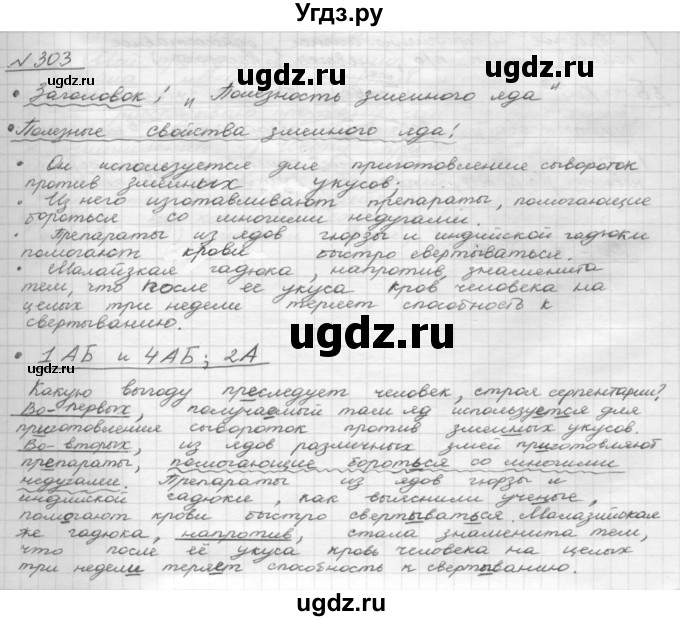 Угдз.ру
№ 303
• Заголовок! „Полезность змеиного яда"
• Полезные свойства змеиного яда!
• Он используется для приготовление сывороток
против змеиных укусов;
• Из него изготавливают препараты, помогающие
бороться со многими недугами.
• Препараты из ядов гюрзы и индийской гадюки
помогают крови быстро свертываться.
• Малайзкая гадюка, напротив, знаменита
тем, что после её укуса кров человека на
целых три недели теряет способность к
свертыванию.
• 1АБ и 4АБ; 2А
Какую выгоду преследует человек, строя серпентарии?
Во-первых, получаемый там яд используется для
приготовления сывороток против змеиных укусов.
Во-вторых, из ядов различных змей приготовляют
препараты, помогающие бороться со многими
недугами. Препараты из ядов гюрзы и
индийской гадюки, как выяснили учёные,
помогают крови быстро свертываться. Малазийская
же гадюка, напротив, стала знаменита тем,
что после её укуса кровь человека на целых
три недели теряет способность к свертыванию.
ugdz.ru
ugdz.ru
ugdz.ru
ugdz.ru
ugdz.ru
ugdz.ru
ugdz.ru
ugdz.ru
ugdz.ru
ugdz.ru